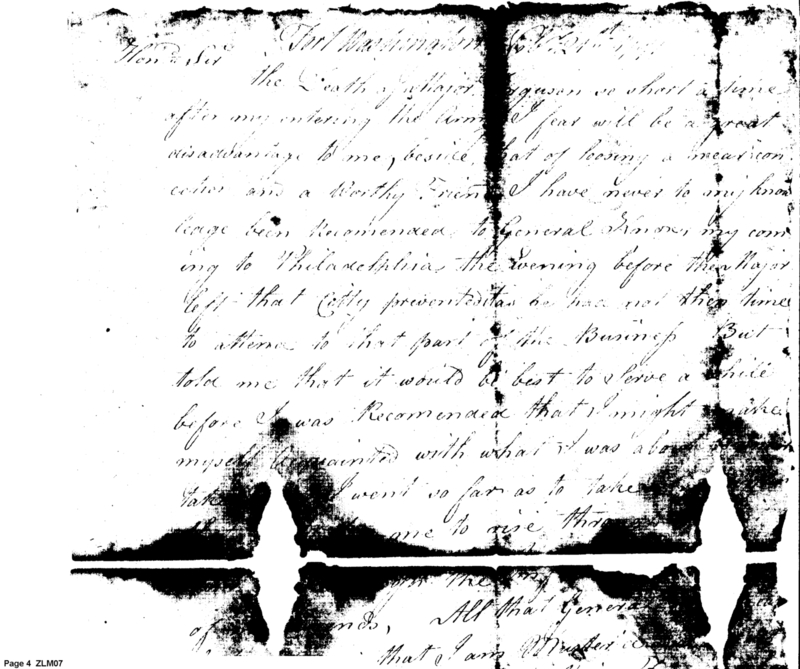 Fort Washington
Hond Sir
the Death of Major Ferguson so short a time
after my entering the Army I fear will be a great
disadvantage to me, beside that of loosing a near con
and a Worthy Friend I have never to my know
leage been Recomended to General Knox, my com
ing to Philadelphia the Evening before the Major
left that Citty prevented as he had not then time
to attend to that part of the Business But
told me that it would be best to Serve a while
before I was Recomended that I might make
myself acquainted with what I was about
take I went so far as to take
me to rise thro
for the
of nds, All that General
that I am
Page 4 ZLM07